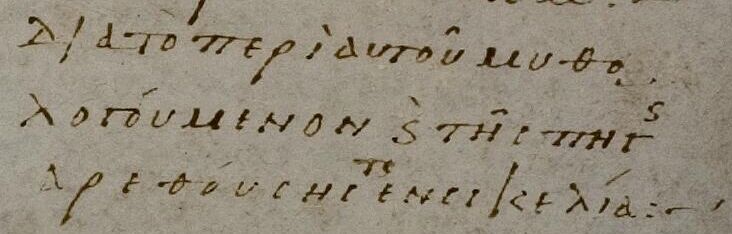 διατὸ περὶ αυτοῦ μυθο
λογούμενον ϗ τῆς πηγς
αρεθούσης της ἐν σικελία:~